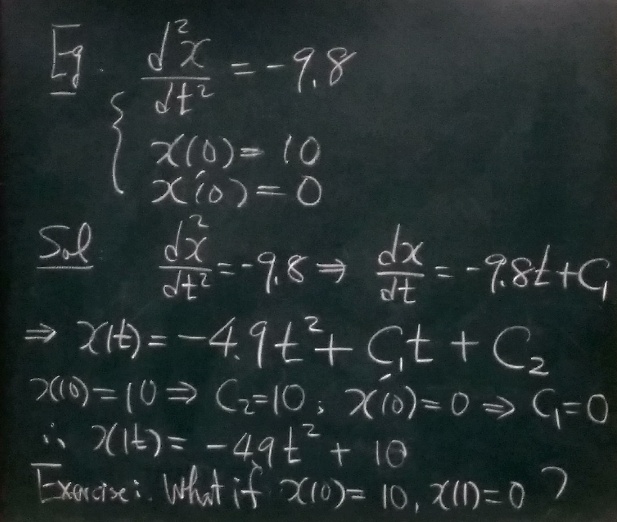 Eg. d²x/dt² = -9.8
x(0) = 10
x'(0) = 0
Sol. d²x/dt² = -9.8 ⇒ dx/dt = -9.8t + C₁
⇒ x(t) = -4.9t² + C₁t + C₂
x(0) = 10 ⇒ C₂ = 10; x'(0) = 0 ⇒ C₁ = 0
∴ x(t) = -4.9t² + 10
Exercise: What if x(0) = 10, x(1) = 0 ?